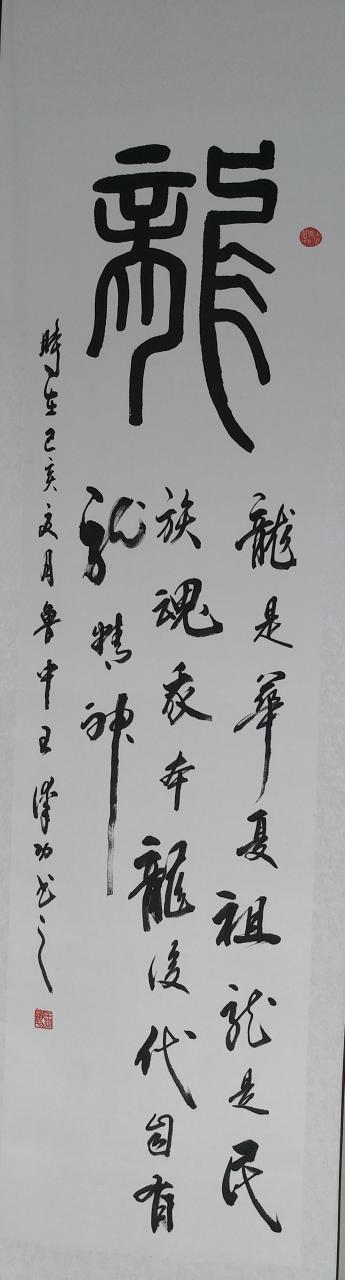 龍
龍是華夏祖龙是民
族魂我本龍後代自有
龙精神
時在己亥月魯中王功书之